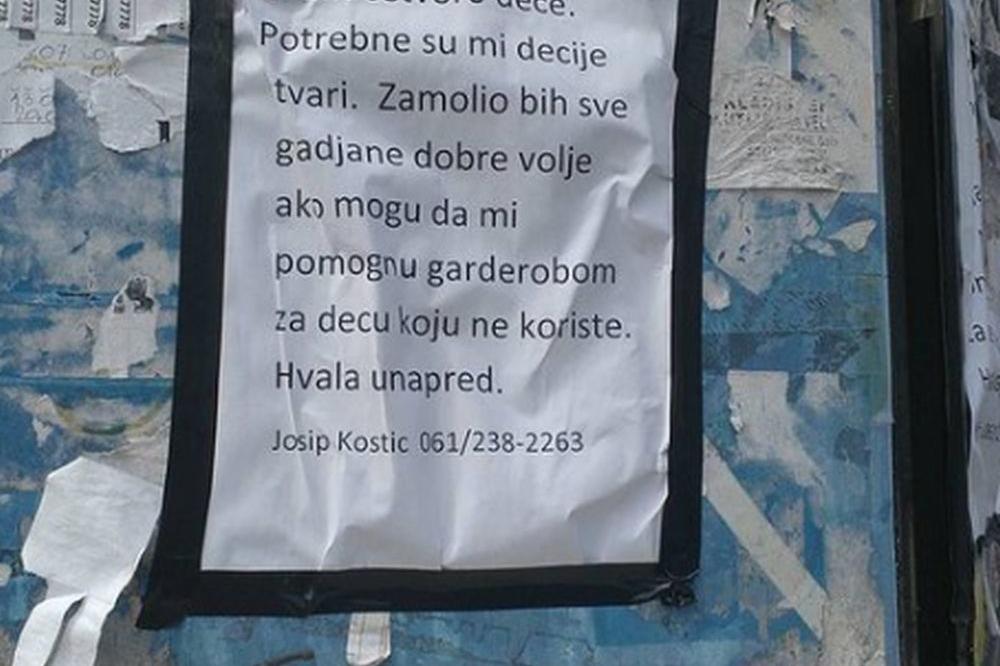 dece.
Potrebne su mi decije
tvari. Zamolio bih sve
gadjane dobre volje
ako mogu da mi
pomognu garderobom
za decu koju ne koriste.
Hvala unapred.
Josip Kostic 061/238-2263